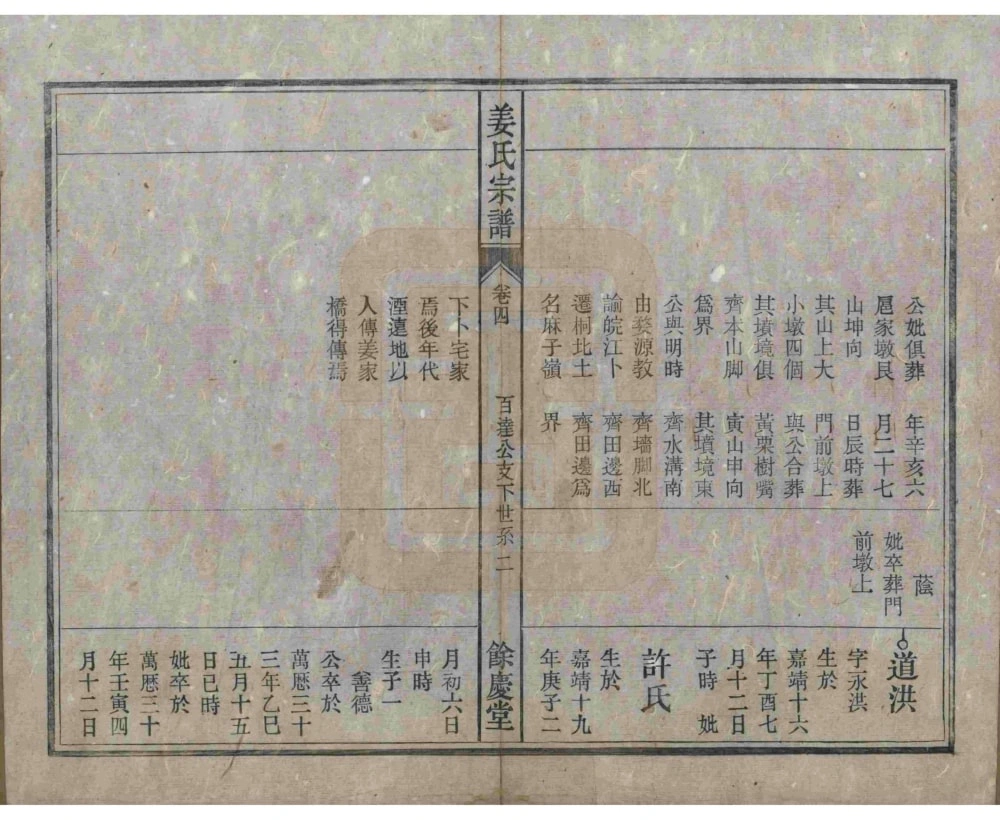 公妣俱葬
扈家墩艮
山坤向
其山上大
小墩四個
其墳境俱
齊本山脚
爲界
公與明時
由婺源教
諭皖江卜
遷桐北土
名麻子嶺
年辛亥六
月二十七
日辰時葬
門前墩上
與公合葬
黃栗樹嘴
寅山申向
其墳境東
齊水溝南
齊墻脚北
齊田邊西
齊田邊爲
界
蔭
妣卒葬門
前墩上
道洪
字永洪
生於
嘉靖十六
年丁酉七
月十二日
子時 妣
許氏
生於
嘉靖十九
年庚子二
姜氏宗譜
卷四
百達公支下世系 二
餘慶堂
下卜宅家
焉後年代
湮遠地以
人傳姜家
橋得傳焉
月初六日
申時
生子一
善德
公卒於
萬曆三十
三年乙巳
五月十五
日巳時
妣卒於
萬曆三十
年壬寅四
月十二日